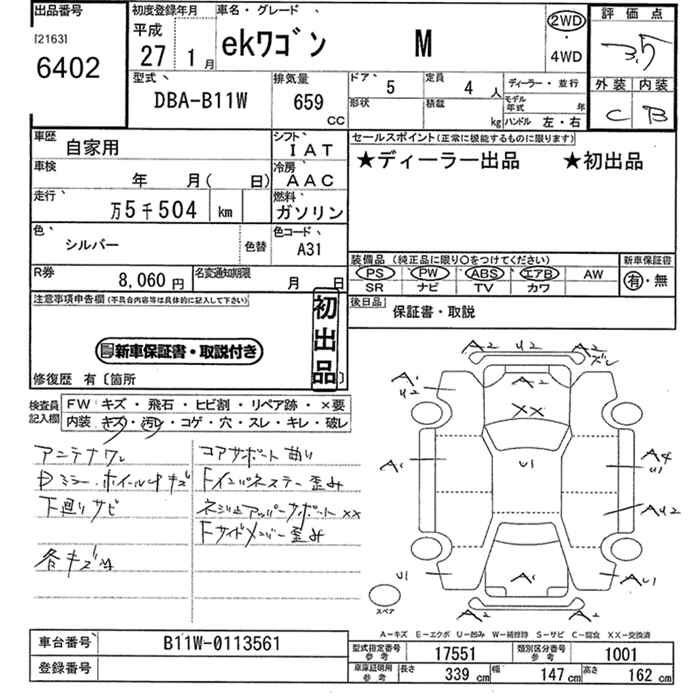 出品番号
[2163]
6402
初度登録年月
平成
27 年 1 月
車名・グレード
ekワゴン M
2WD
・
4WD
評価点
3.5
外装 内装
C B
型式
DBA-B11W
排気量
659
CC
ドア 5
形状
定員 4 人
積載 kg
ディーラー・並行
モデル年式 年
ハンドル 左・右
車歴
自家用
シフト
IAT
車検
年 月( 日)
冷房
AAC
走行
万5千504 km
燃料
ガソリン
色
シルバー
色替
色コード
A31
R券
8,060 円
名変通知期限
月 日
セールスポイント(正常に機能するものに限ります)
★ディーラー出品 ★初出品
装備品 (純正品に限り〇をつけてください)
PS PW ABS エアB AW
SR ナビ TV カワ
新車保証書
有・無
後日品
保証書・取説
注意事項申告欄(不具合内容等は具体的に記入して下さい)
初出品
新車保証書・取説付き
修復歴 有〔箇所
検査員
記入欄
FW キズ・飛石・ヒビ割・リペア跡・×要
内装 キズ・汚レ・コゲ・穴・スレ・キレ・破レ
アンテナワレ
Dミラー・ホイール4キズ
下廻りサビ
各キズ
コアサポート曲り
Fインパネステー歪み
ネジ止アッパーサポート××
Fサイドメンバー歪み
A2 U2 A2
ズレ
A1
U2
A2
XX
A1
U1
A4
U1
AU2
U1
A1
AU1
A2 A2
スペア
A－キズ E－エクボ U－凹み W－補修跡 S－サビ C－腐食 XX－交換済
車台番号
B11W-0113561
登録番号
型式指定番号
参考
17551
類別区分番号
参考
1001
車庫証明用
参考
長さ 339 cm
幅 147 cm
高さ 162 cm